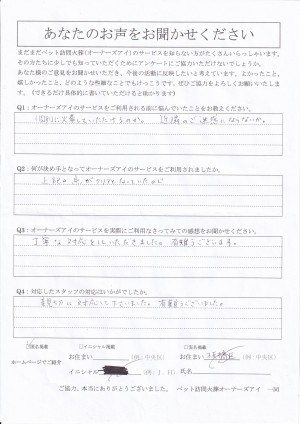 あなたのお声をお聞かせください
まだまだペット訪問火葬(オーナーズアイ)のサービスを知らない方がたくさんいらっしゃいます。
その方たちに少しでも知っていただくためにアンケートにご協力いただけないでしょうか。
あなた様のご意見をお聞かせいただき、今後の活動に反映したいと考えています。よかったこと、
嬉しかったこと、どのような些細なことでもけっこうです。ぜひご協力をよろしくお願いいたします。
(できるだけ具体的に書いていただけると助かります)
Q1:オーナーズアイのサービスをご利用される前に悩んでいたことをお教えください。
個別に火葬していただけるのか。 近隣のご迷惑にならないか。
Q2:何が決め手となってオーナーズアイのサービスをご利用されましたか。
上記の点がクリアとなっていたので
Q3:オーナーズアイのサービスを実際にご利用なさってみての感想をお聞かせください。
丁寧な対応をしていただきました。有難うございます。
Q4:対応したスタッフの対応はいかがでしたか。
親切に対応して下さいました。有難うございました。
匿名掲載 ○イニシャル掲載 ○実名掲載
ホームページでご紹介
お住まい (例:中央区) お住まい (例:中央区)
イニシャル (例:J.H) 氏名
ご協力、本当にありがとうございました。 ペット訪問火葬オーナーズアイ 一同